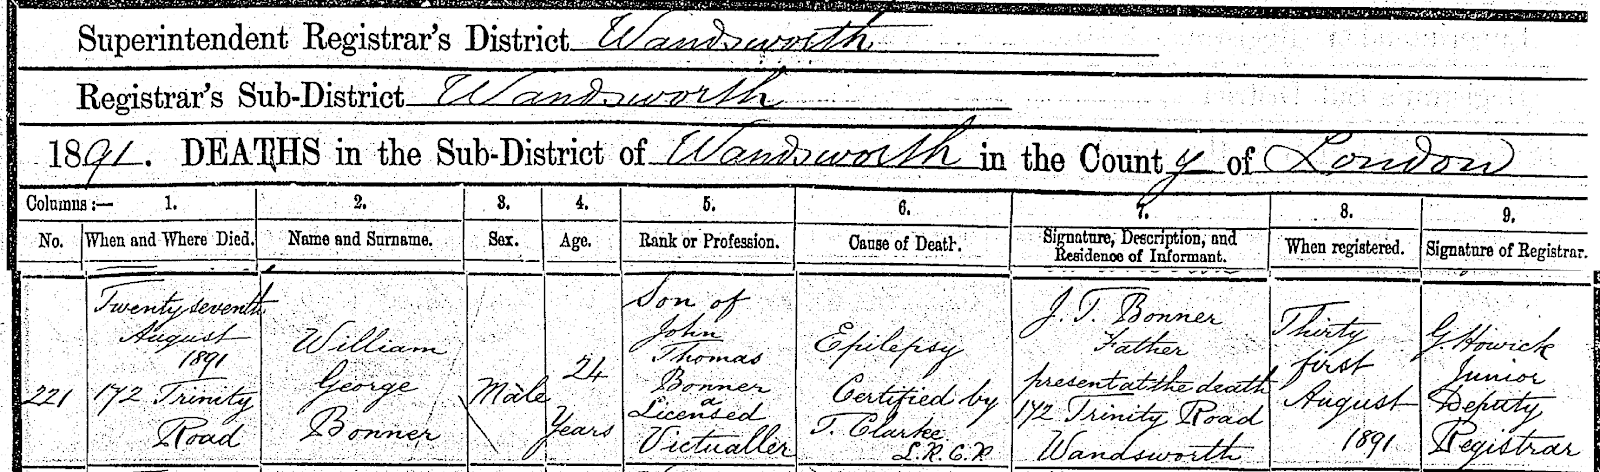 Superintendent Registrar's District Wandsworth
Registrar's Sub-District Wandsworth
1891. DEATHS in the Sub-District of Wandsworth in the County of London
Columns :— 1. 2. 3. 4. 5. 6. 7. 8. 9.
No. When and Where Died. Name and Surname. Sex. Age. Rank or Profession. Cause of Death. Signature, Description, and Residence of Informant. When registered. Signature of Registrar.
221
Twenty seventh
August
1891
172 Trinity
Road
William
George
Bonner
Male
24
Years
Son of
John
Thomas
Bonner
a
Licensed
Victualler
Epilepsy
Certified by
T. Clarke
L.R.C.P.
J. T. Bonner
Father
present at the death
172 Trinity Road
Wandsworth
Thirty
first
August
1891
G. Howick
Junior
Deputy
Registrar